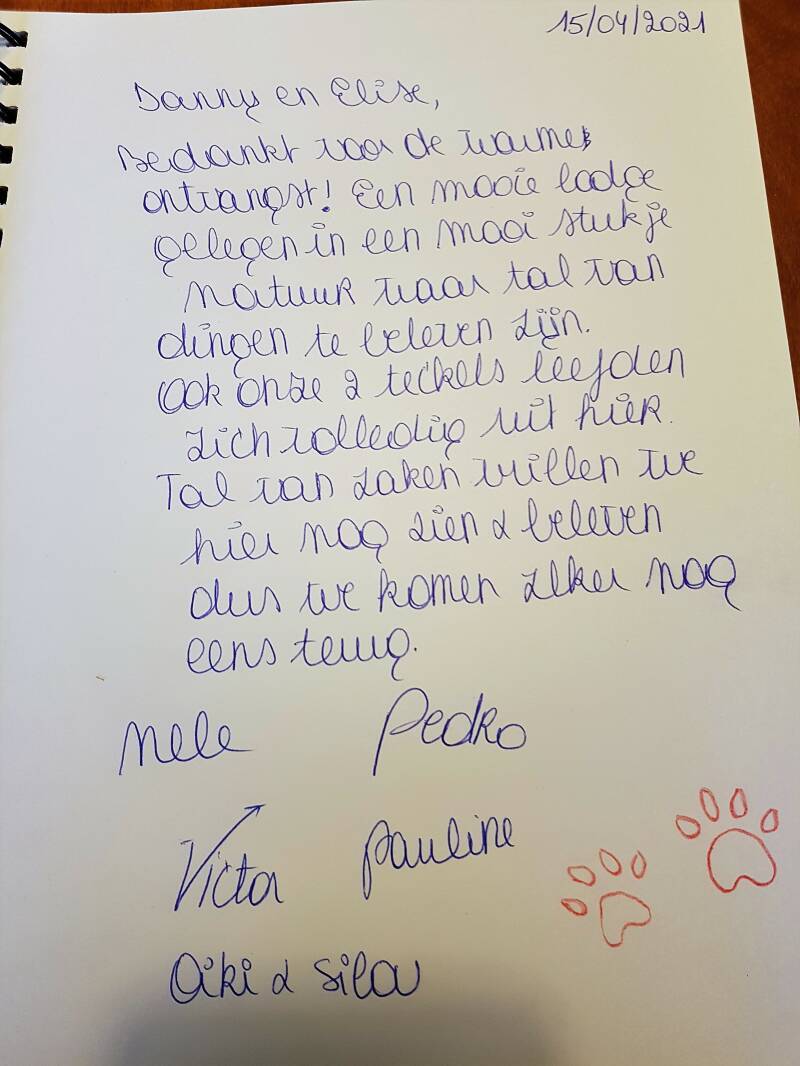 15/04/2021
Danny en Elise,
Bedankt voor de warme
ontvangst! Een mooie lodge
gelegen in een mooi stukje
natuur waar tal van
dingen te beleven zijn.
Ook onze 2 teckels leefden
zich volledig uit hier.
Tal van zaken willen we
hier nog zien & beleven
dus we komen zeker nog
eens terug.
Nele Pedro
Victor Pauline
Aiki & Sila